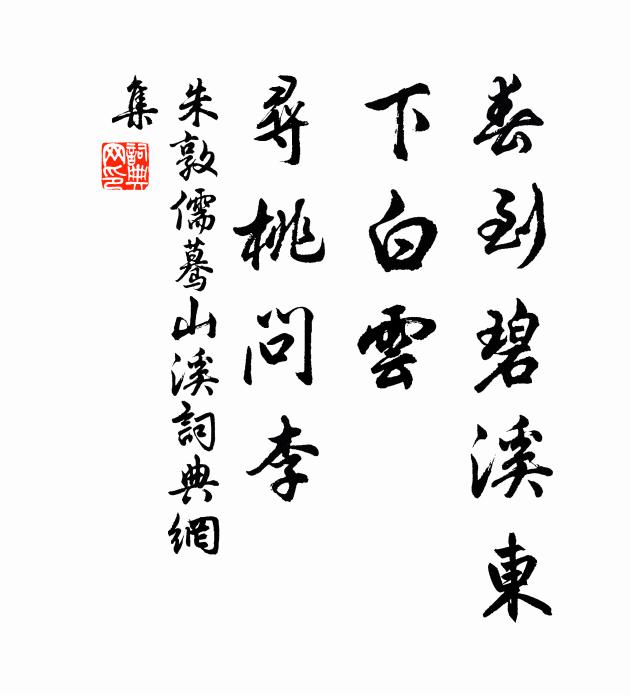 春到碧溪東
下白雲
尋桃問李
朱敦儒驀山溪詞典網
集
詞典
网印